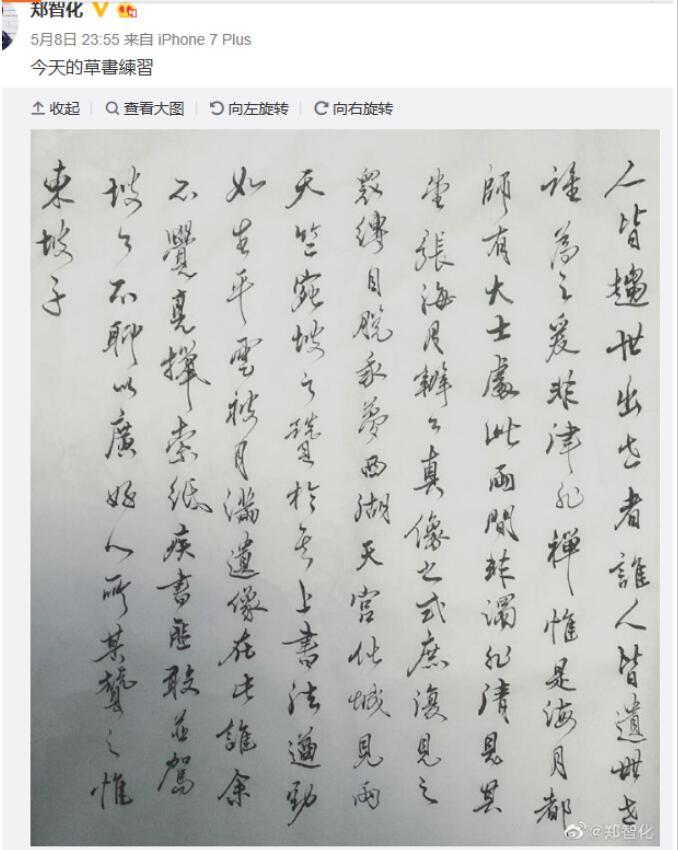 郑智化
5月8日 23:55 来自 iPhone 7 Plus
今天的草書練習
收起 查看大图 向左旋转 向右旋转
人皆趨世出世者誰人皆遺世世
誰為之爰非律非禪惟是海月都
師有大士處此兩間非濁非清見其
堂張海月辯公真像之式庶復見之
眾縛自脫我夢西湖天宮化城見兩
天竺宛坡之贊於其上書法遒勁
如生平雲披月滿遺像在此誰余
不覺索紙疾書匪敢並駕
坡公不聊以廣好人所其贊之惟
東坡子
@郑智化